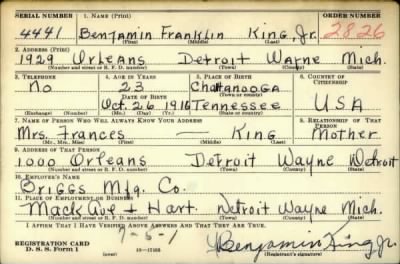 SERIAL NUMBER 1. NAME (Print) ORDER NUMBER
4441 Benjamin Franklin King, Jr. 2826
(First) (Middle) (Last)
2. ADDRESS (Print)
1929 Orleans Detroit Wayne Mich.
(Number and street or R. F. D. number) (Town) (County) (State)
3. TELEPHONE 4. AGE IN YEARS 5. PLACE OF BIRTH 6. COUNTRY OF CITIZENSHIP
No 23 Chattanooga
(Town or county)
DATE OF BIRTH
Oct. 26 1916 Tennessee USA
(Exchange) (Number) (Mo.) (Day) (Yr.) (State or country)
7. NAME OF PERSON WHO WILL ALWAYS KNOW YOUR ADDRESS 8. RELATIONSHIP OF THAT PERSON
Mrs. Frances — King Mother
(Mr., Mrs., Miss) (First) (Middle) (Last)
9. ADDRESS OF THAT PERSON
1000 Orleans Detroit Wayne Detroit
(Number and street or R. F. D. number) (Town) (County) (State)
10. EMPLOYER'S NAME
Briggs Mfg. Co.
11. PLACE OF EMPLOYMENT OR BUSINESS
Mack Ave + Hart. Detroit Wayne Mich.
(Number and street or R. F. D. number) (Town) (County) (State)
I AFFIRM THAT I HAVE VERIFIED ABOVE ANSWERS AND THAT THEY ARE TRUE.
REGISTRATION CARD
D. S. S. Form 1 (over) 16—17105 Benjamin King Jr.
(Registrant's signature)